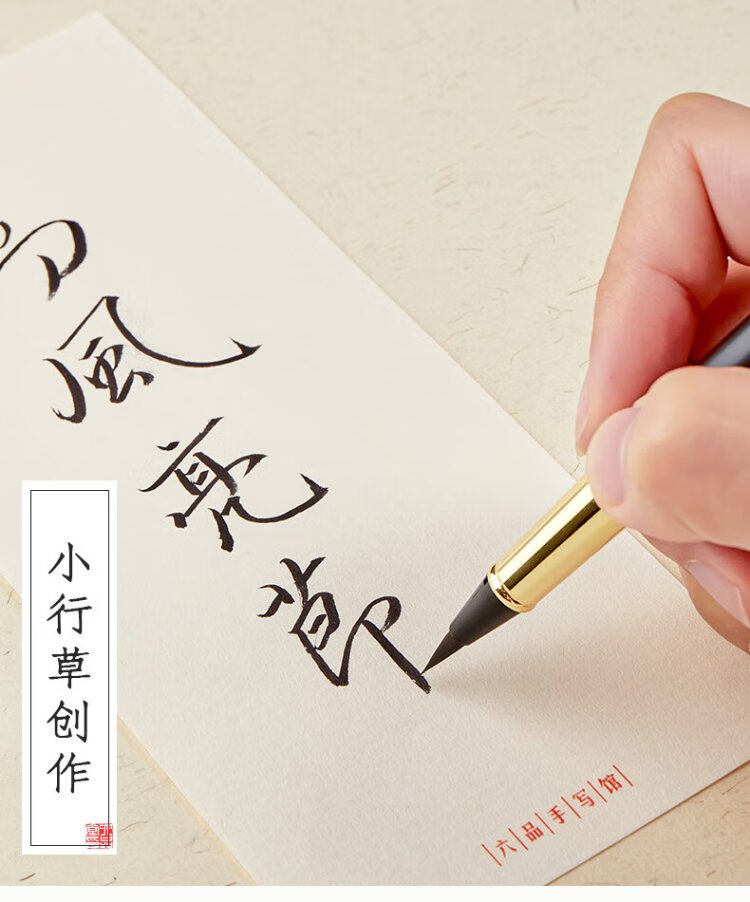 風亮節
小行草创作
六品手写馆